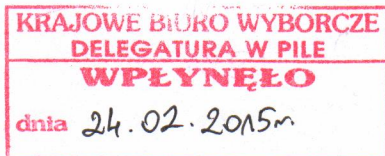 KRAJOWE BIURO WYBORCZE
DELEGATURA W PILE
WPŁYNĘŁO
dnia 24.02.2015r.